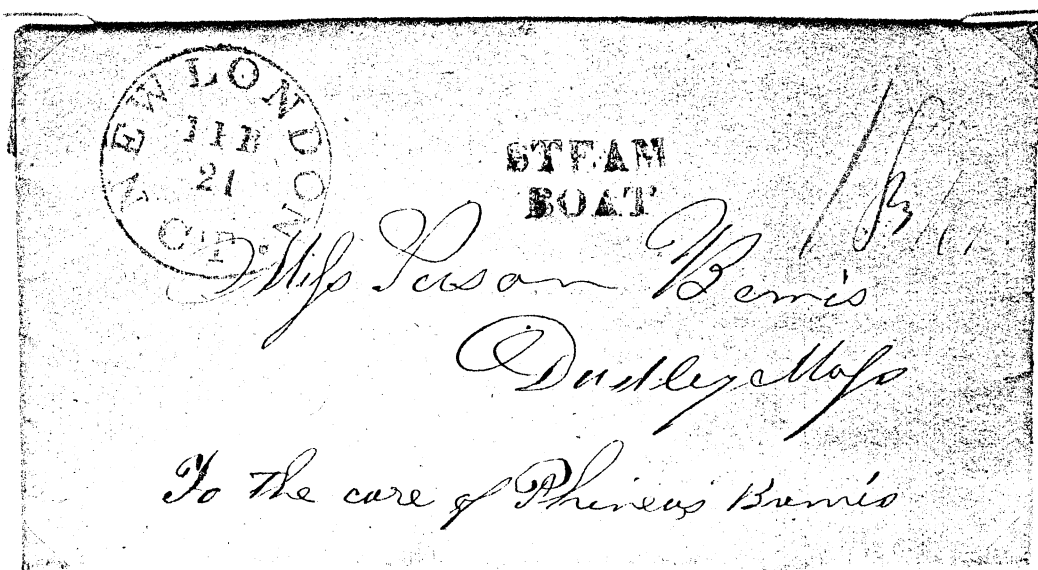 NEW LONDON CT.
FEB
21
STEAM
BOAT
Miss Susan Bemis
Dudley Mass
To the care of Phineas Bemis